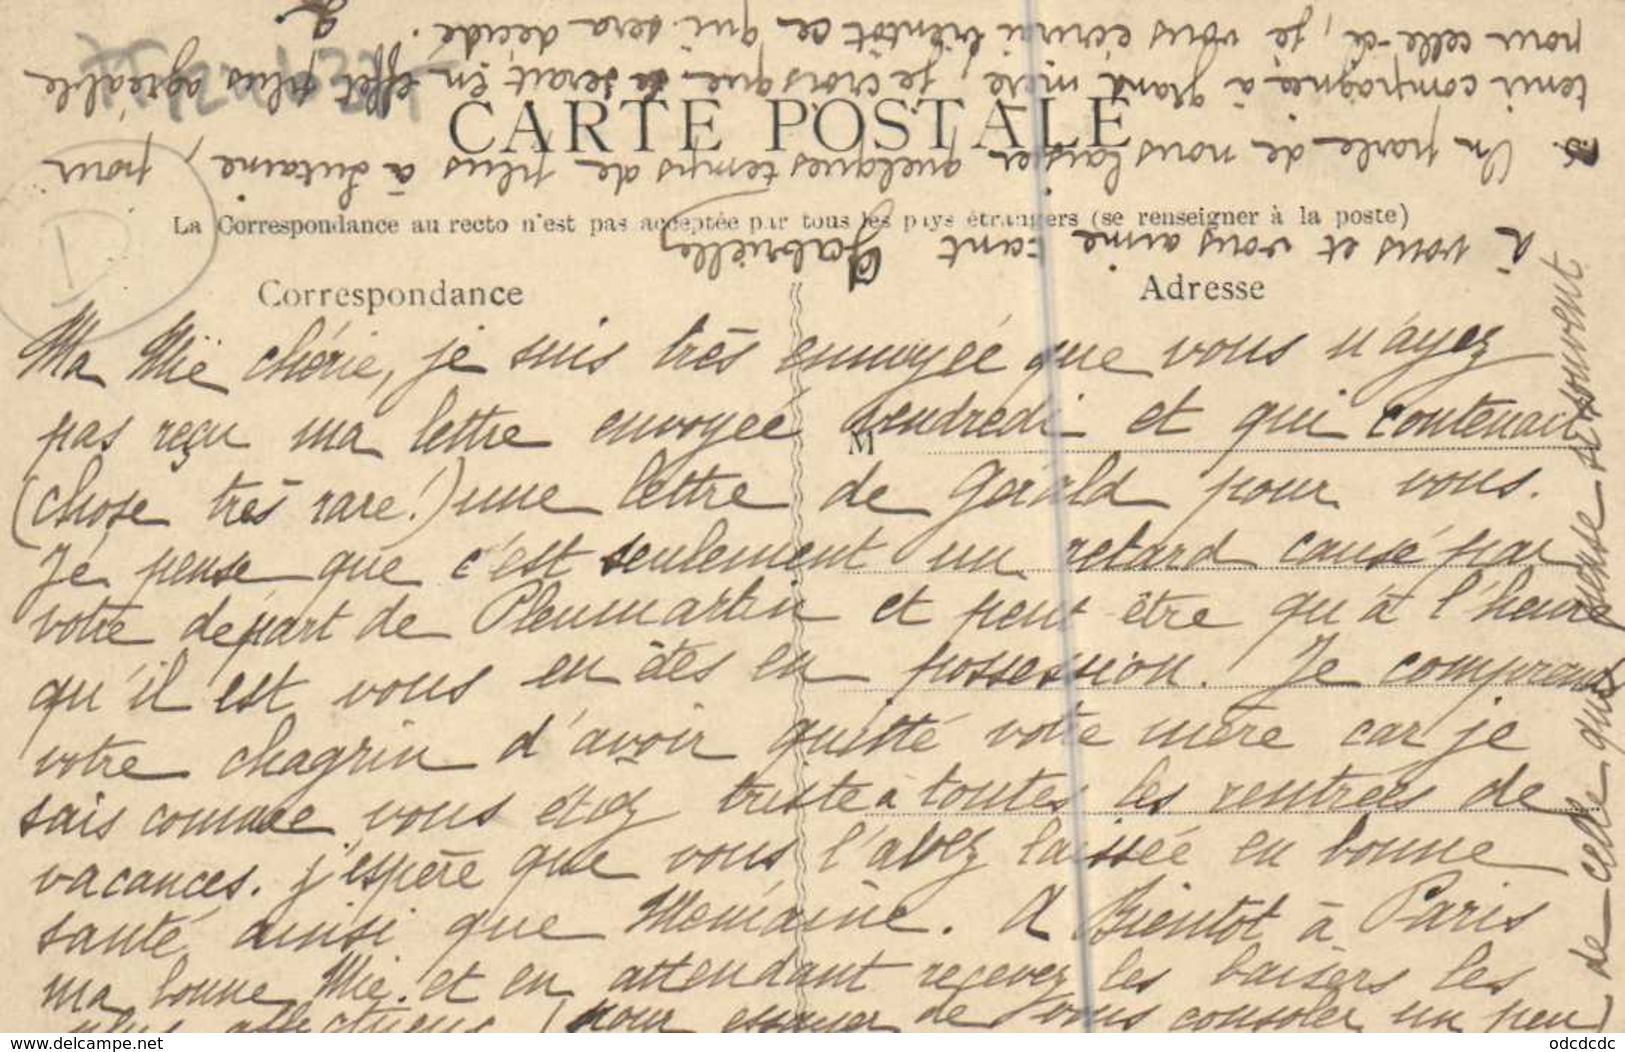 CARTE POSTALE
La Correspondance au recto n'est pas acceptée par tous les pays étrangers (se renseigner à la poste)
Correspondance
Adresse
M
Ma Mie chérie, je suis très ennuyée que vous n'ayez
pas reçu ma lettre envoyée vendredi et qui contenait
(chose très rare!) une lettre de Gérald pour vous.
Je pense que c'est seulement un retard causé par
votre départ de Pleumartin et peut être qu'à l'heure
qu'il est vous en êtes en possession. Je comprends
votre chagrin d'avoir quitté votre mère car je
sais comme vous étiez triste à toutes les rentrées de
vacances. j'espère que vous l'avez laissée en bonne
santé, ainsi que Memaine. A Bientôt à Paris
ma bonne Mie. et en attendant recevez les baisers les
plus affectueux (pour essayer de vous consoler un peu)
de celle qui pense si souvent
à vous et vous aime tant Gabrielle
On parle de nous laisser quelques temps de plus à Lutaine, pour
tenir compagnie à grand mère, je crois que ce serait en effet plus agréable
pour celle-ci, je vous écrirai bientôt ce qui sera décidé.
G.
D
delcampe.net
odcdcdc